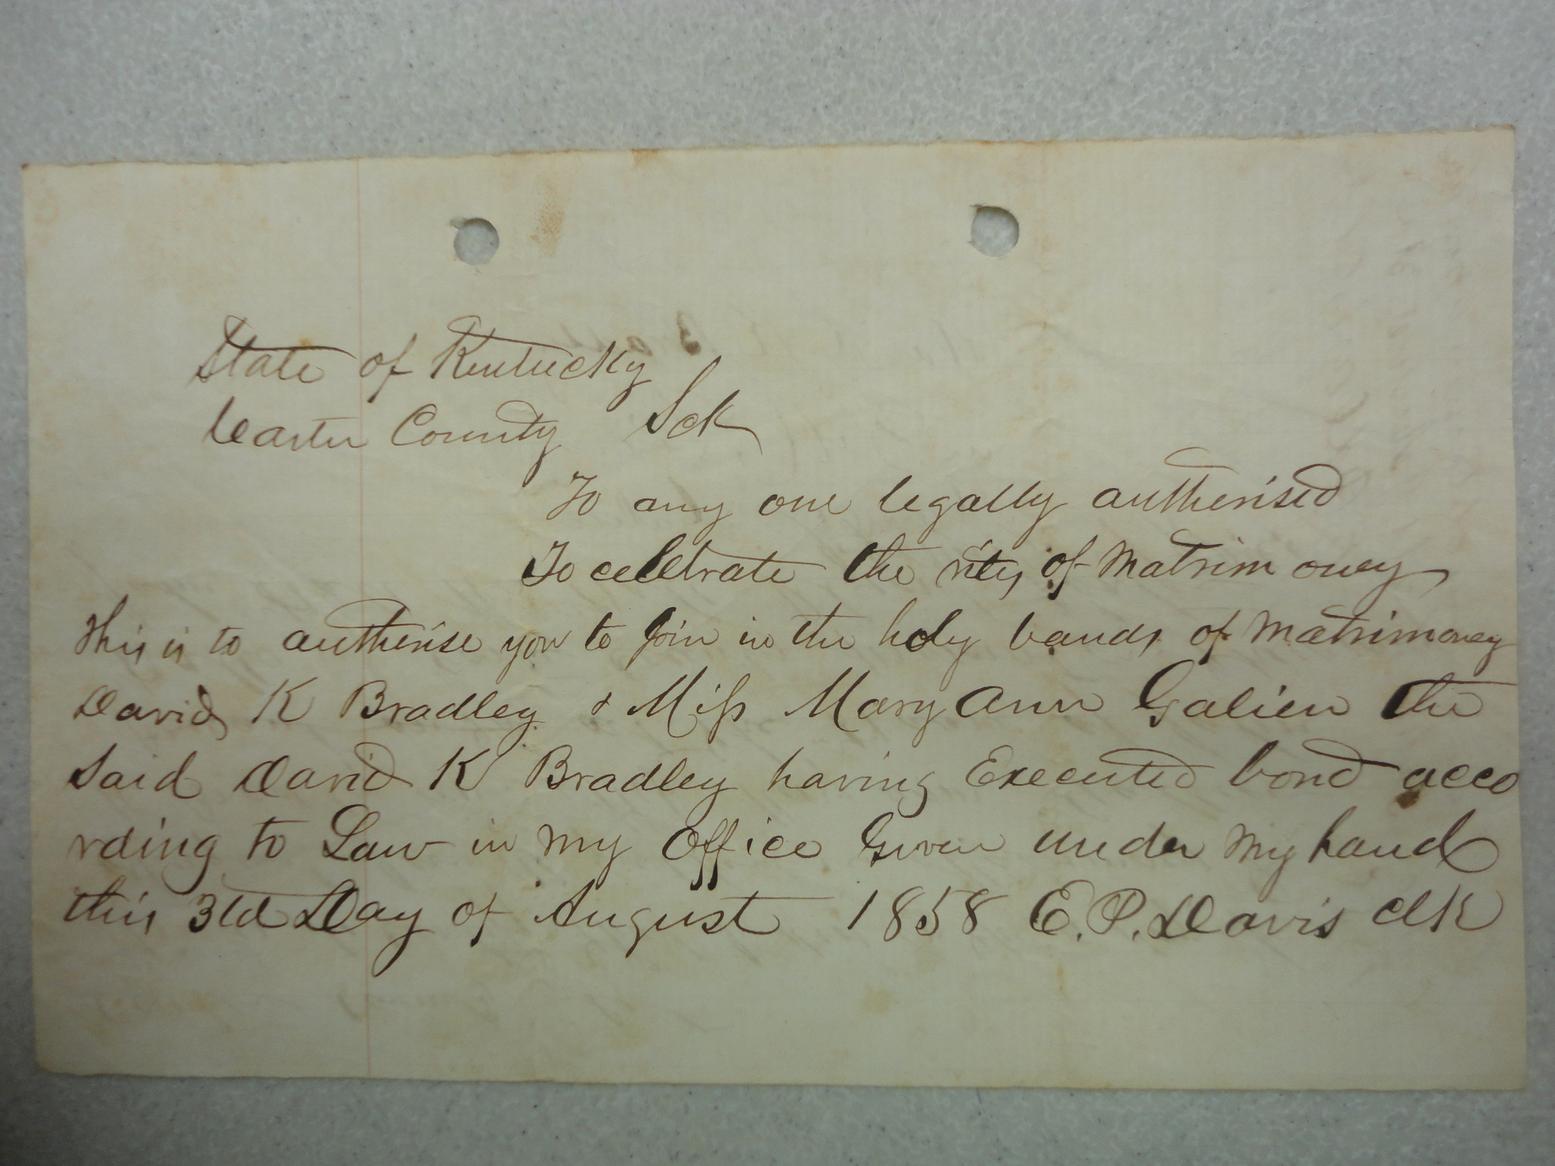 State of Kentucky
Carter County Sct
To any one legally authorised
To celebrate the rites of Matrimoney
This is to authorise you to join in the holy bands of Matrimoney
David K Bradley & Miss Mary Ann Galien the
Said David K Bradley having Executed bond acco
rding to Law in my Office Given under my hand
this 3td Day of August 1858 E. P. Davis Clk